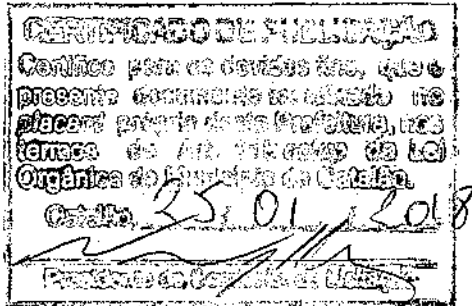 CERTIFICADO DE PUBLICAÇÃO
Certifico para os devidos fins, que o
presente documento foi afixado no
placard próprio desta Prefeitura, nos
termos do Art. da Lei
Orgânica do Município de Catalão.
Catalão, 25 / 01 / 2018
Presidente da Comissão de Licitação